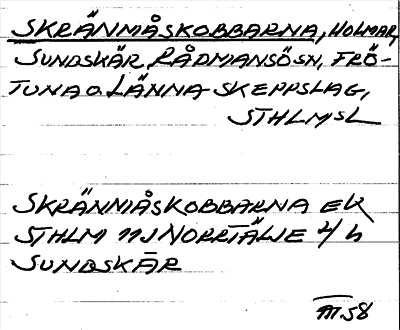 SKRÄNMÅSKOBBARNA, HOLMAR,
SUNDSKÄR, RÅDMANSÖSN, FRÖ-
TUNA O LÄNNA SKEPPSLAG,
STHLMSL
SKRÄNMÅSKOBBARNA EK
STHLM 11J NORRTÄLJE 4 h
SUNDSKÄR
III.58